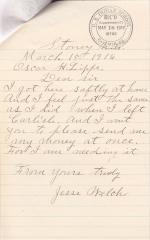 Stoney
March 10th 1916
Oscar H Lipps
Dear Sir
I got here saftly at home
And I feel just the same
as I did when I left
Carlisle. And I want
you to please send me
my money at once.
For I am needing it.
From Yours Truly
Jesse Welch
REC'D